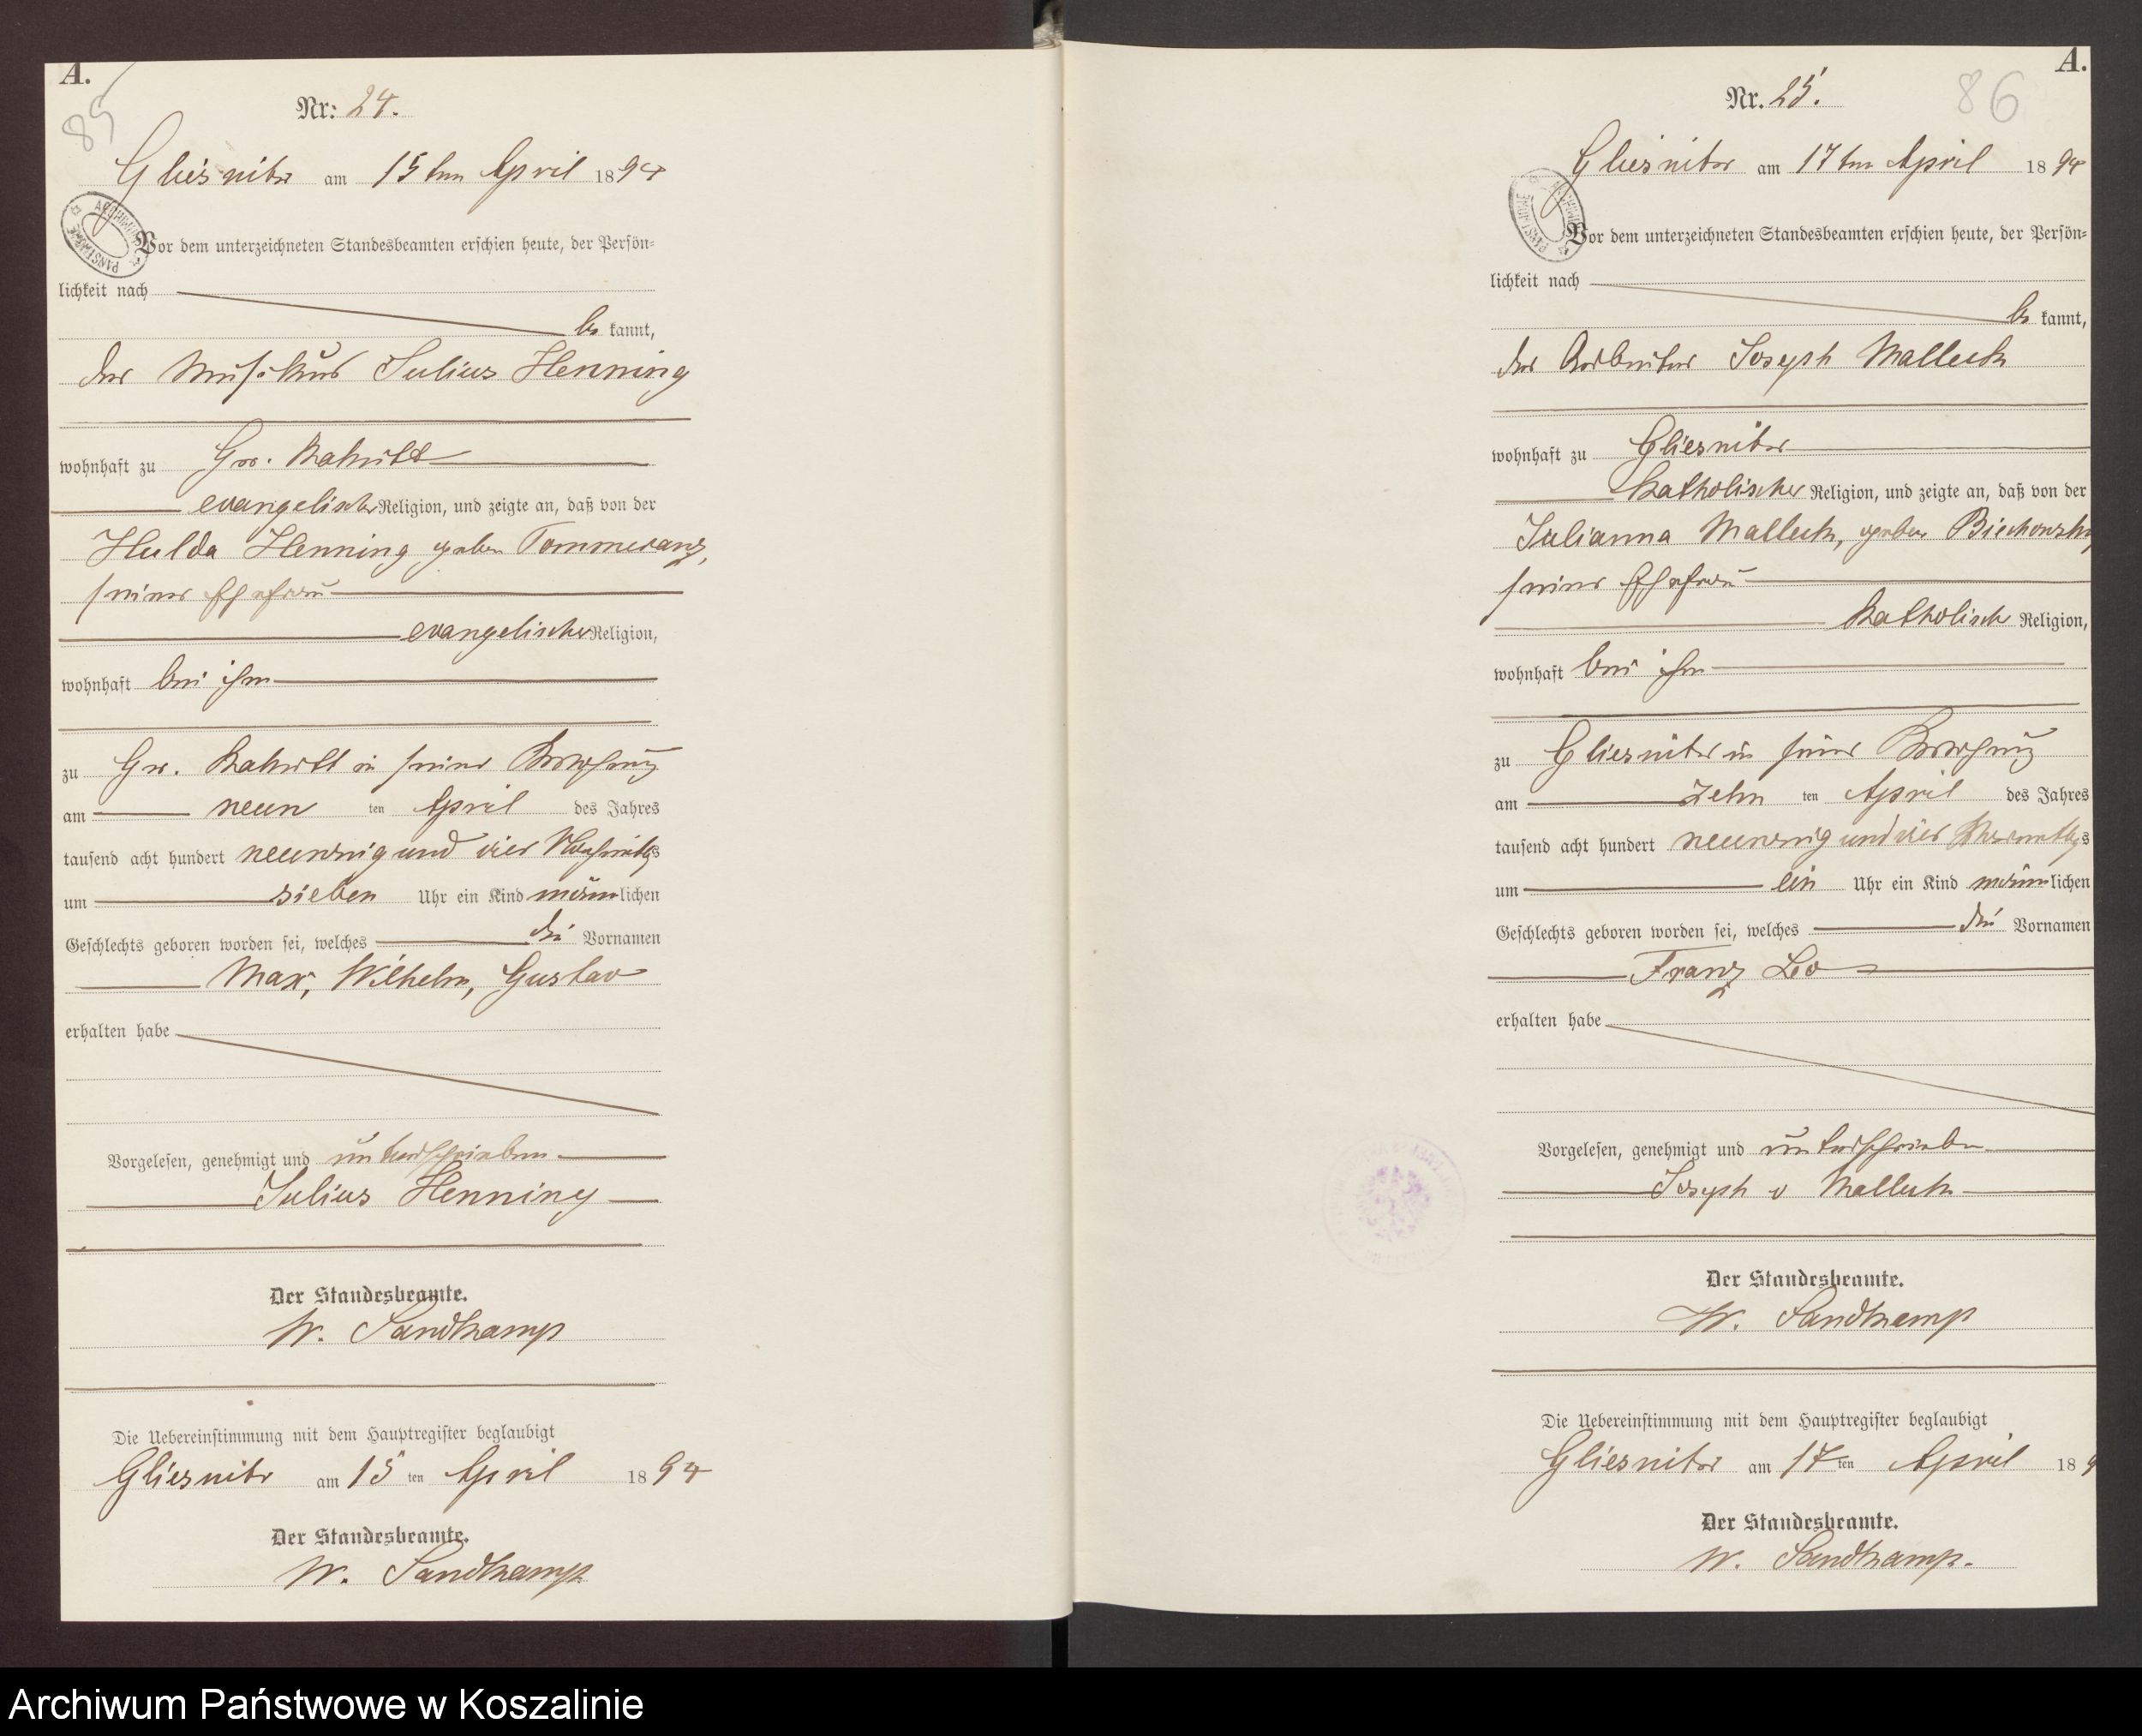 A.
85
Nr: 24.
Gliesnitz am 15ten April 1894
Vor dem unterzeichneten Standesbeamten erschien heute, der Persön=
lichkeit nach
be kannt,
der Musikus Julius Henning
wohnhaft zu Gr.
evangelischer Religion, und zeigte an, daß von der
Hulda Henning geboren Pommeranz,
seiner Ehefrau
evangelischer Religion,
wohnhaft bei ihm
zu Gr. in seiner Wohnung
am neun ten April des Jahres
tausend acht hundert neunzig und vier Nachmittags
um sieben Uhr ein Kind männlichen
Geschlechts geboren worden sei, welches die Vornamen
Max, Wilhelm, Gustav
erhalten habe
Vorgelesen, genehmigt und unterschrieben
Julius Henning
Der Standesbeamte.
W. Sandkamp
Die Uebereinstimmung mit dem Hauptregister beglaubigt
Gliesnitz am 15 ten April 1894
Der Standesbeamte.
W. Sandkamp
A.
86
Nr. 25.
Gliesnitz am 17ten April 1894
Vor dem unterzeichneten Standesbeamten erschien heute, der Persön=
lichkeit nach
be kannt,
der Arbeiter Joseph Malleck
wohnhaft zu Gliesnitz
katholischer Religion, und zeigte an, daß von der
Julianna Malleck, geboren
seiner Ehefrau
katholisch Religion,
wohnhaft bei ihm
zu Gliesnitz in seiner Wohnung
am zehn ten April des Jahres
tausend acht hundert neunzig und vier Vormittags
um ein Uhr ein Kind männlichen
Geschlechts geboren worden sei, welches die Vornamen
Franz Leo
erhalten habe
Vorgelesen, genehmigt und unterschrieben
Joseph v Malleck
Der Standesbeamte.
W. Sandkamp
Die Uebereinstimmung mit dem Hauptregister beglaubigt
Gliesnitz am 17 ten April 189
Der Standesbeamte.
W. Sandkamp.
Archiwum Państwowe w Koszalinie